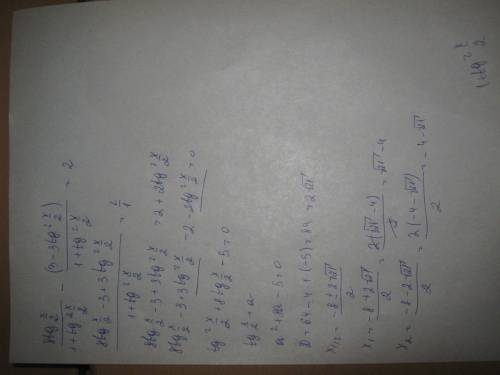 8tg x/2 / (1+tg² x/2) - (3-3tg² x/2) / (1+tg² x/2) = 2
(8tg x/2 - 3+3tg² x/2) / (1+tg² x/2) = 2/1
8tg x/2 - 3+3tg² x/2 = 2+2tg² x/2
8tg x/2 - 3+3tg² x/2 - 2 - 2tg² x/2 = 0
tg² x/2 + 8tg x/2 - 5 = 0
tg x/2 = a
a² + 8a - 5 = 0
D = 64 - 4 · (-5) = 84 = 2√21
x1/2 = (-8 ± 2√21) / 2
x1 = (-8 + 2√21) / 2 = 2(√21 - 4) / 2 = √21 - 4
x2 = (-8 - 2√21) / 2 = 2(-4 - √21) / 2 = -4 - √21
1+tg² x/2